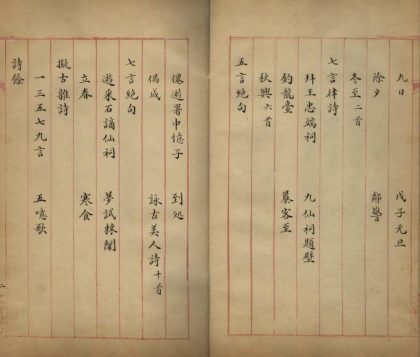 九日　戊子元旦
除夕
冬至二首
七言律詩
拜王忠端祠　九仙祠題壁
釣龍臺　暮客至
秋興六首
五言絕句
倦遊署中憶子　到処
偶成　詠古美人詩十首
七言絕句
遊采石謫仙祠　夢試棘闈
立春　寒食
擬古雜詩
一三五七九言　五噫歌
詩餘